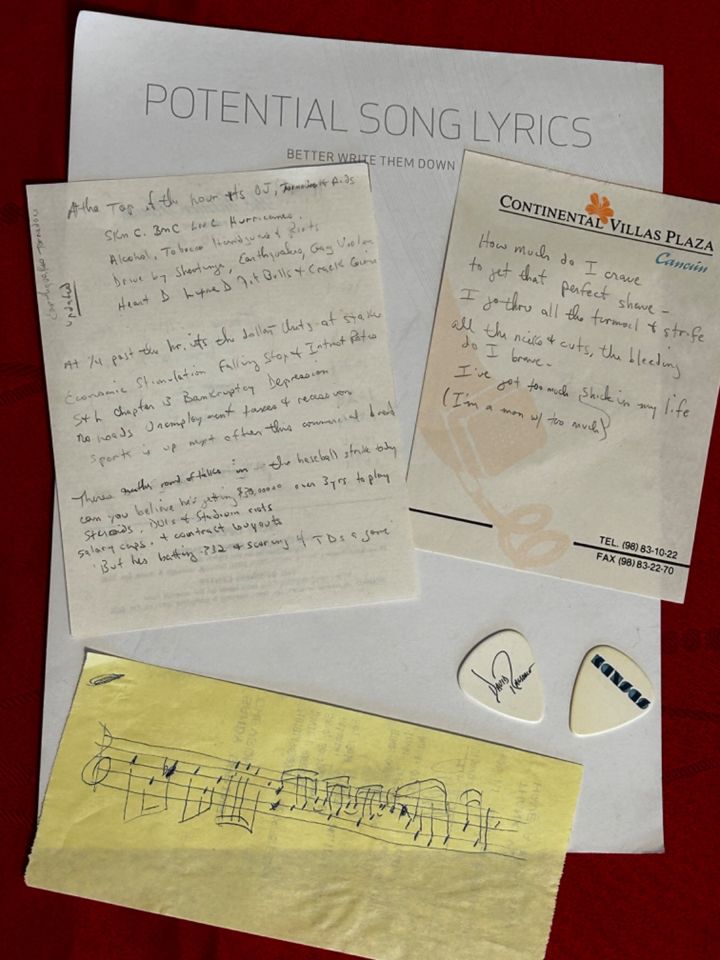 POTENTIAL SONG LYRICS
BETTER WRITE THEM DOWN
At the Top of the hour its OJ, & Aids
Hurricanes
Alcohol, Tobacco Handguns & Riots
Drive by Shootings, Earthquakes, Gay
Heart D Pit Bulls & Crack
updated
At 1/4 past the hr. its the dollar thats at stake
Economic Stimulation Falling Stock & Intrest Rates
S&L Chapter 3 Bankruptcy Depression
Unemployment taxes & recession
Sports is up next after this commercial break
Theres another round of talks in the baseball strike today
can you believe he's getting over 3 yrs. to play
Steroids, DUI's & Stadium
Salary caps & contract buyouts
But hes batting .332 & scoring 4 TDs a game
CONTINENTAL VILLAS PLAZA
Cancún
How much do I crave
to get that perfect shave -
I go thru all the turmoil & strife
all the nicks & cuts, the bleeding
do I brave -
I've got too much Shick in my life
(I'm a man w/ too much)
TEL. (98) 83-10-22
FAX (98) 83-22-70
David
KANSAS